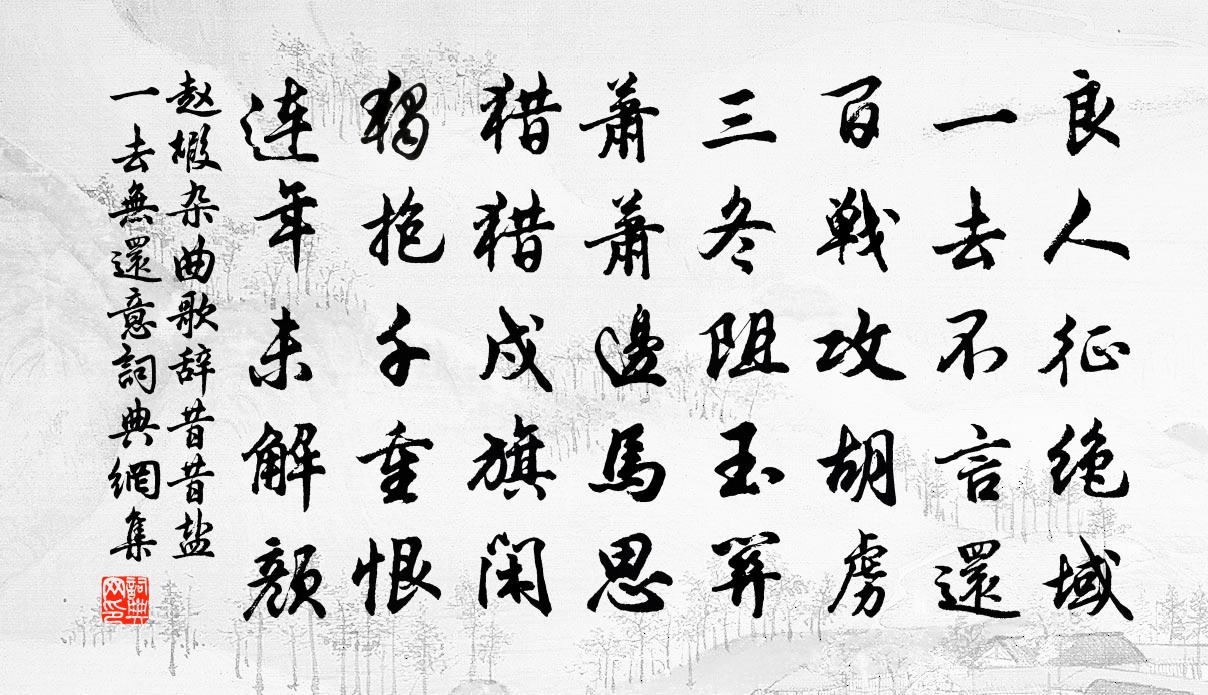 良人征绝域
一去不言還
百戦攻胡虏
三冬阻玉关
蕭蕭邊馬思
猎猎戍旗闲
獨抱千重恨
連年未解颜
赵嘏杂曲歌辞昔昔盐
一去無還意詞典網集
詞典網印